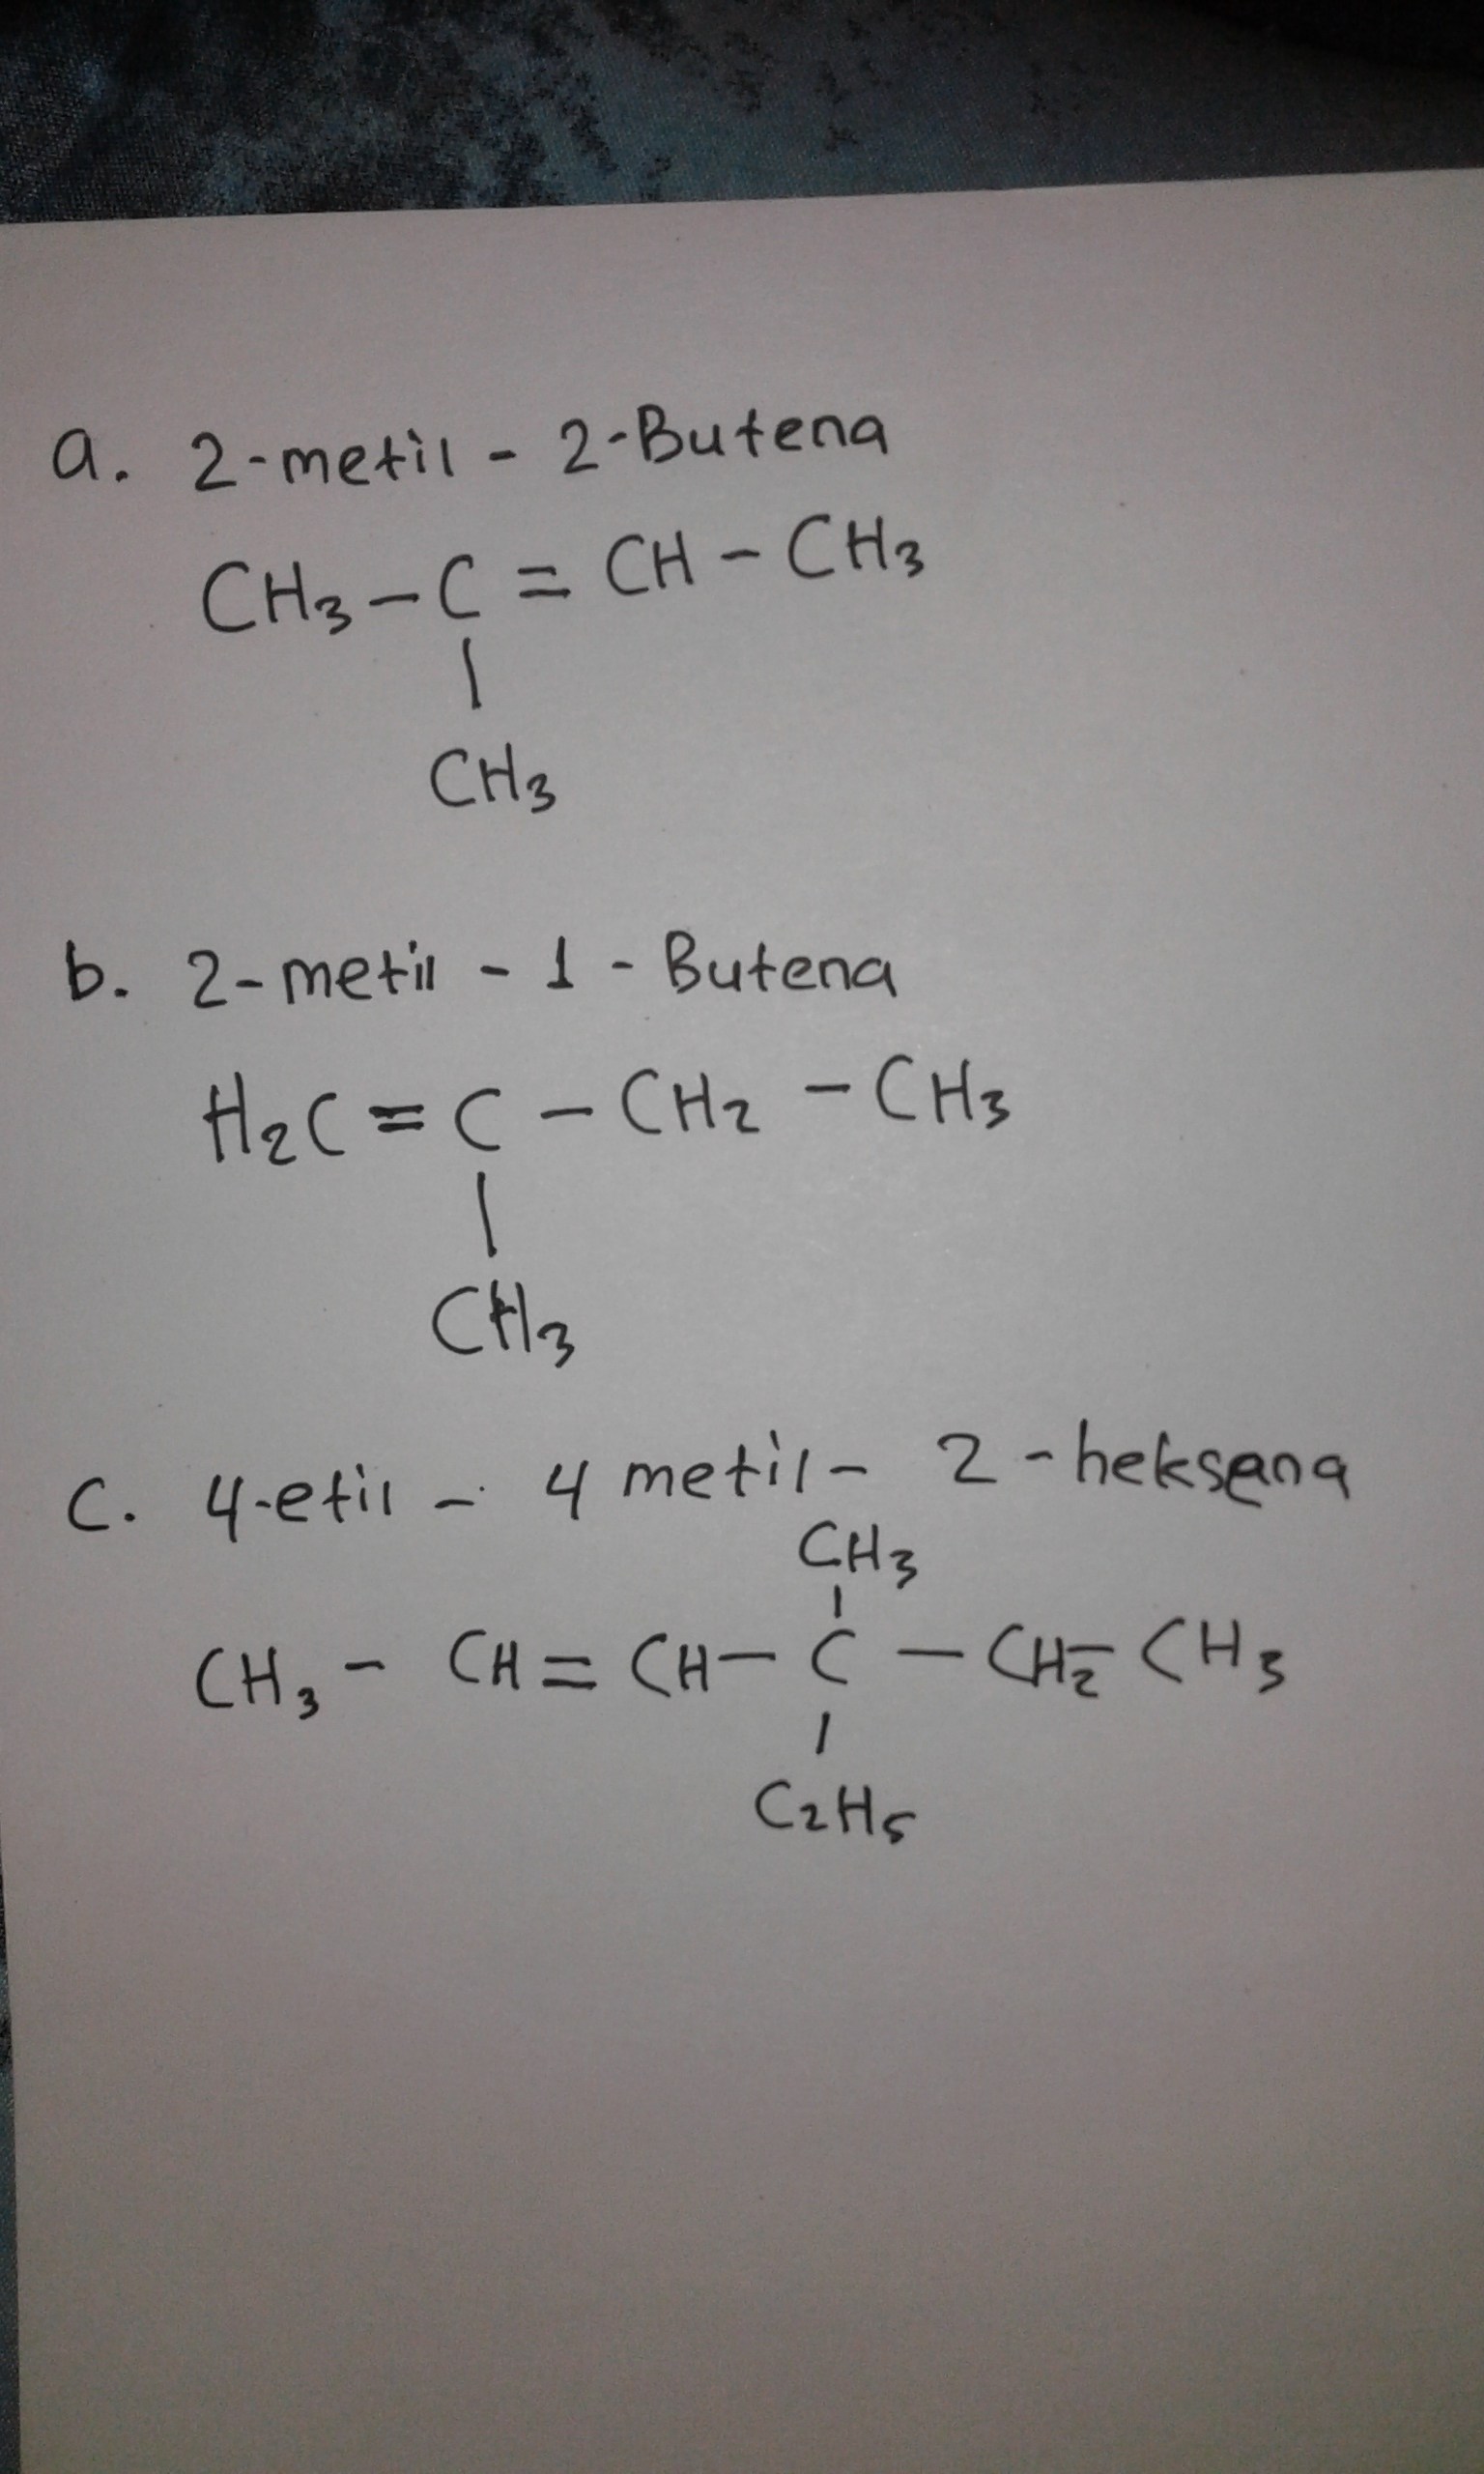 a. 2-metil - 2-Butena
CH3 - C = CH - CH3
|
CH3
b. 2-metil - 1 - Butena
H2C = C - CH2 - CH3
|
CH3
c. 4-etil - 4 metil - 2 - heksena
CH3
|
CH3 - CH = CH - C - CH2 - CH3
|
C2H5